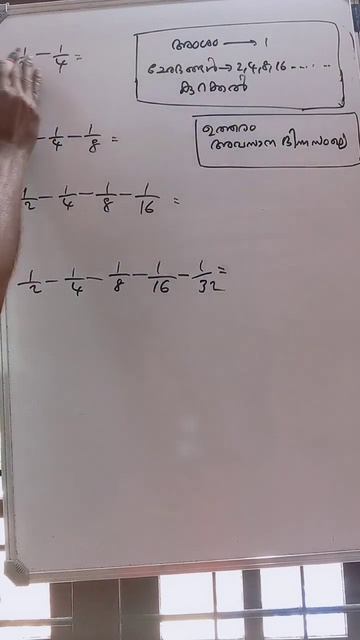 1/2 - 1/4 =
അംശം → 1
ഛേദങ്ങൾ → 2,4,8,16 ......
കുറക്കൽ
- 1/4 - 1/8 =
ഉത്തരം
അവസാന ഭിന്നസംഖ്യ
1/2 - 1/4 - 1/8 - 1/16 =
1/2 - 1/4 - 1/8 - 1/16 - 1/32 =